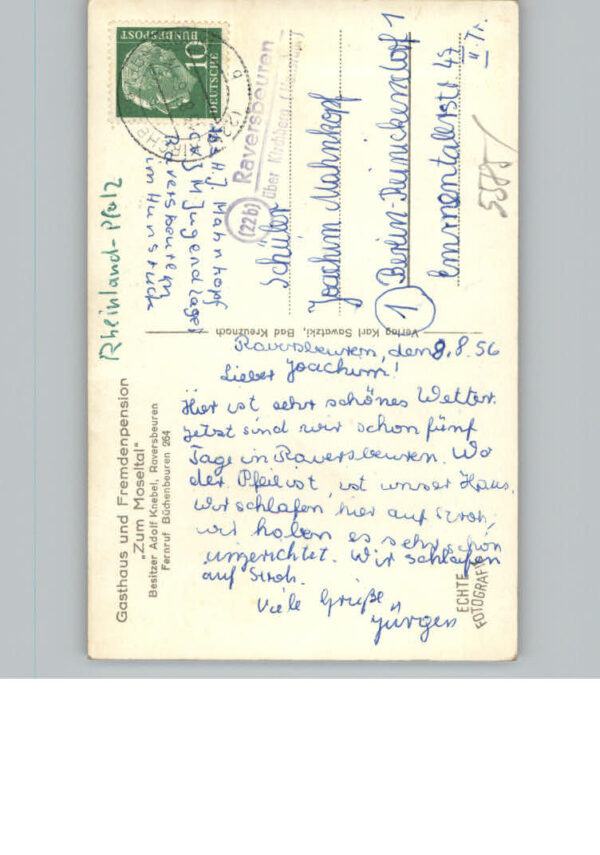 Gasthaus und Fremdenpension
„Zum Moseltal"
Besitzer Adolf Knebel, Raversbeuren
Fernruf Büchenbeuren 264
Rheinland-Pfalz
Raversbeuren, den 8.8.56
Lieber Joachim!
Hier ist sehr schönes Wetter.
Jetzt sind wir schon fünf
Tage in Raversbeuren. Wo
der Pfeil ist, ist unser Haus.
Wir schlafen hier auf Stroh,
wir haben es sehr schön
eingerichtet. Wir schlafen
auf Stroh.
Viele Grüße
Jürgen
ECHTE
FOTOGRAFIE
Verlag Karl Sawatzki, Bad Kreuznach
DEUTSCHE
BUNDESPOST
10
(22b)
Raversbeuren
über Kirchberg (Hunsrück)
Mahnkopf
Jugendlager
Raversbeuren
im Hunsrück
Schüler
Joachim Mahnkopf
1 Berlin-Reinickendorf 1
Emmentalerstr. 49
II. Tr.